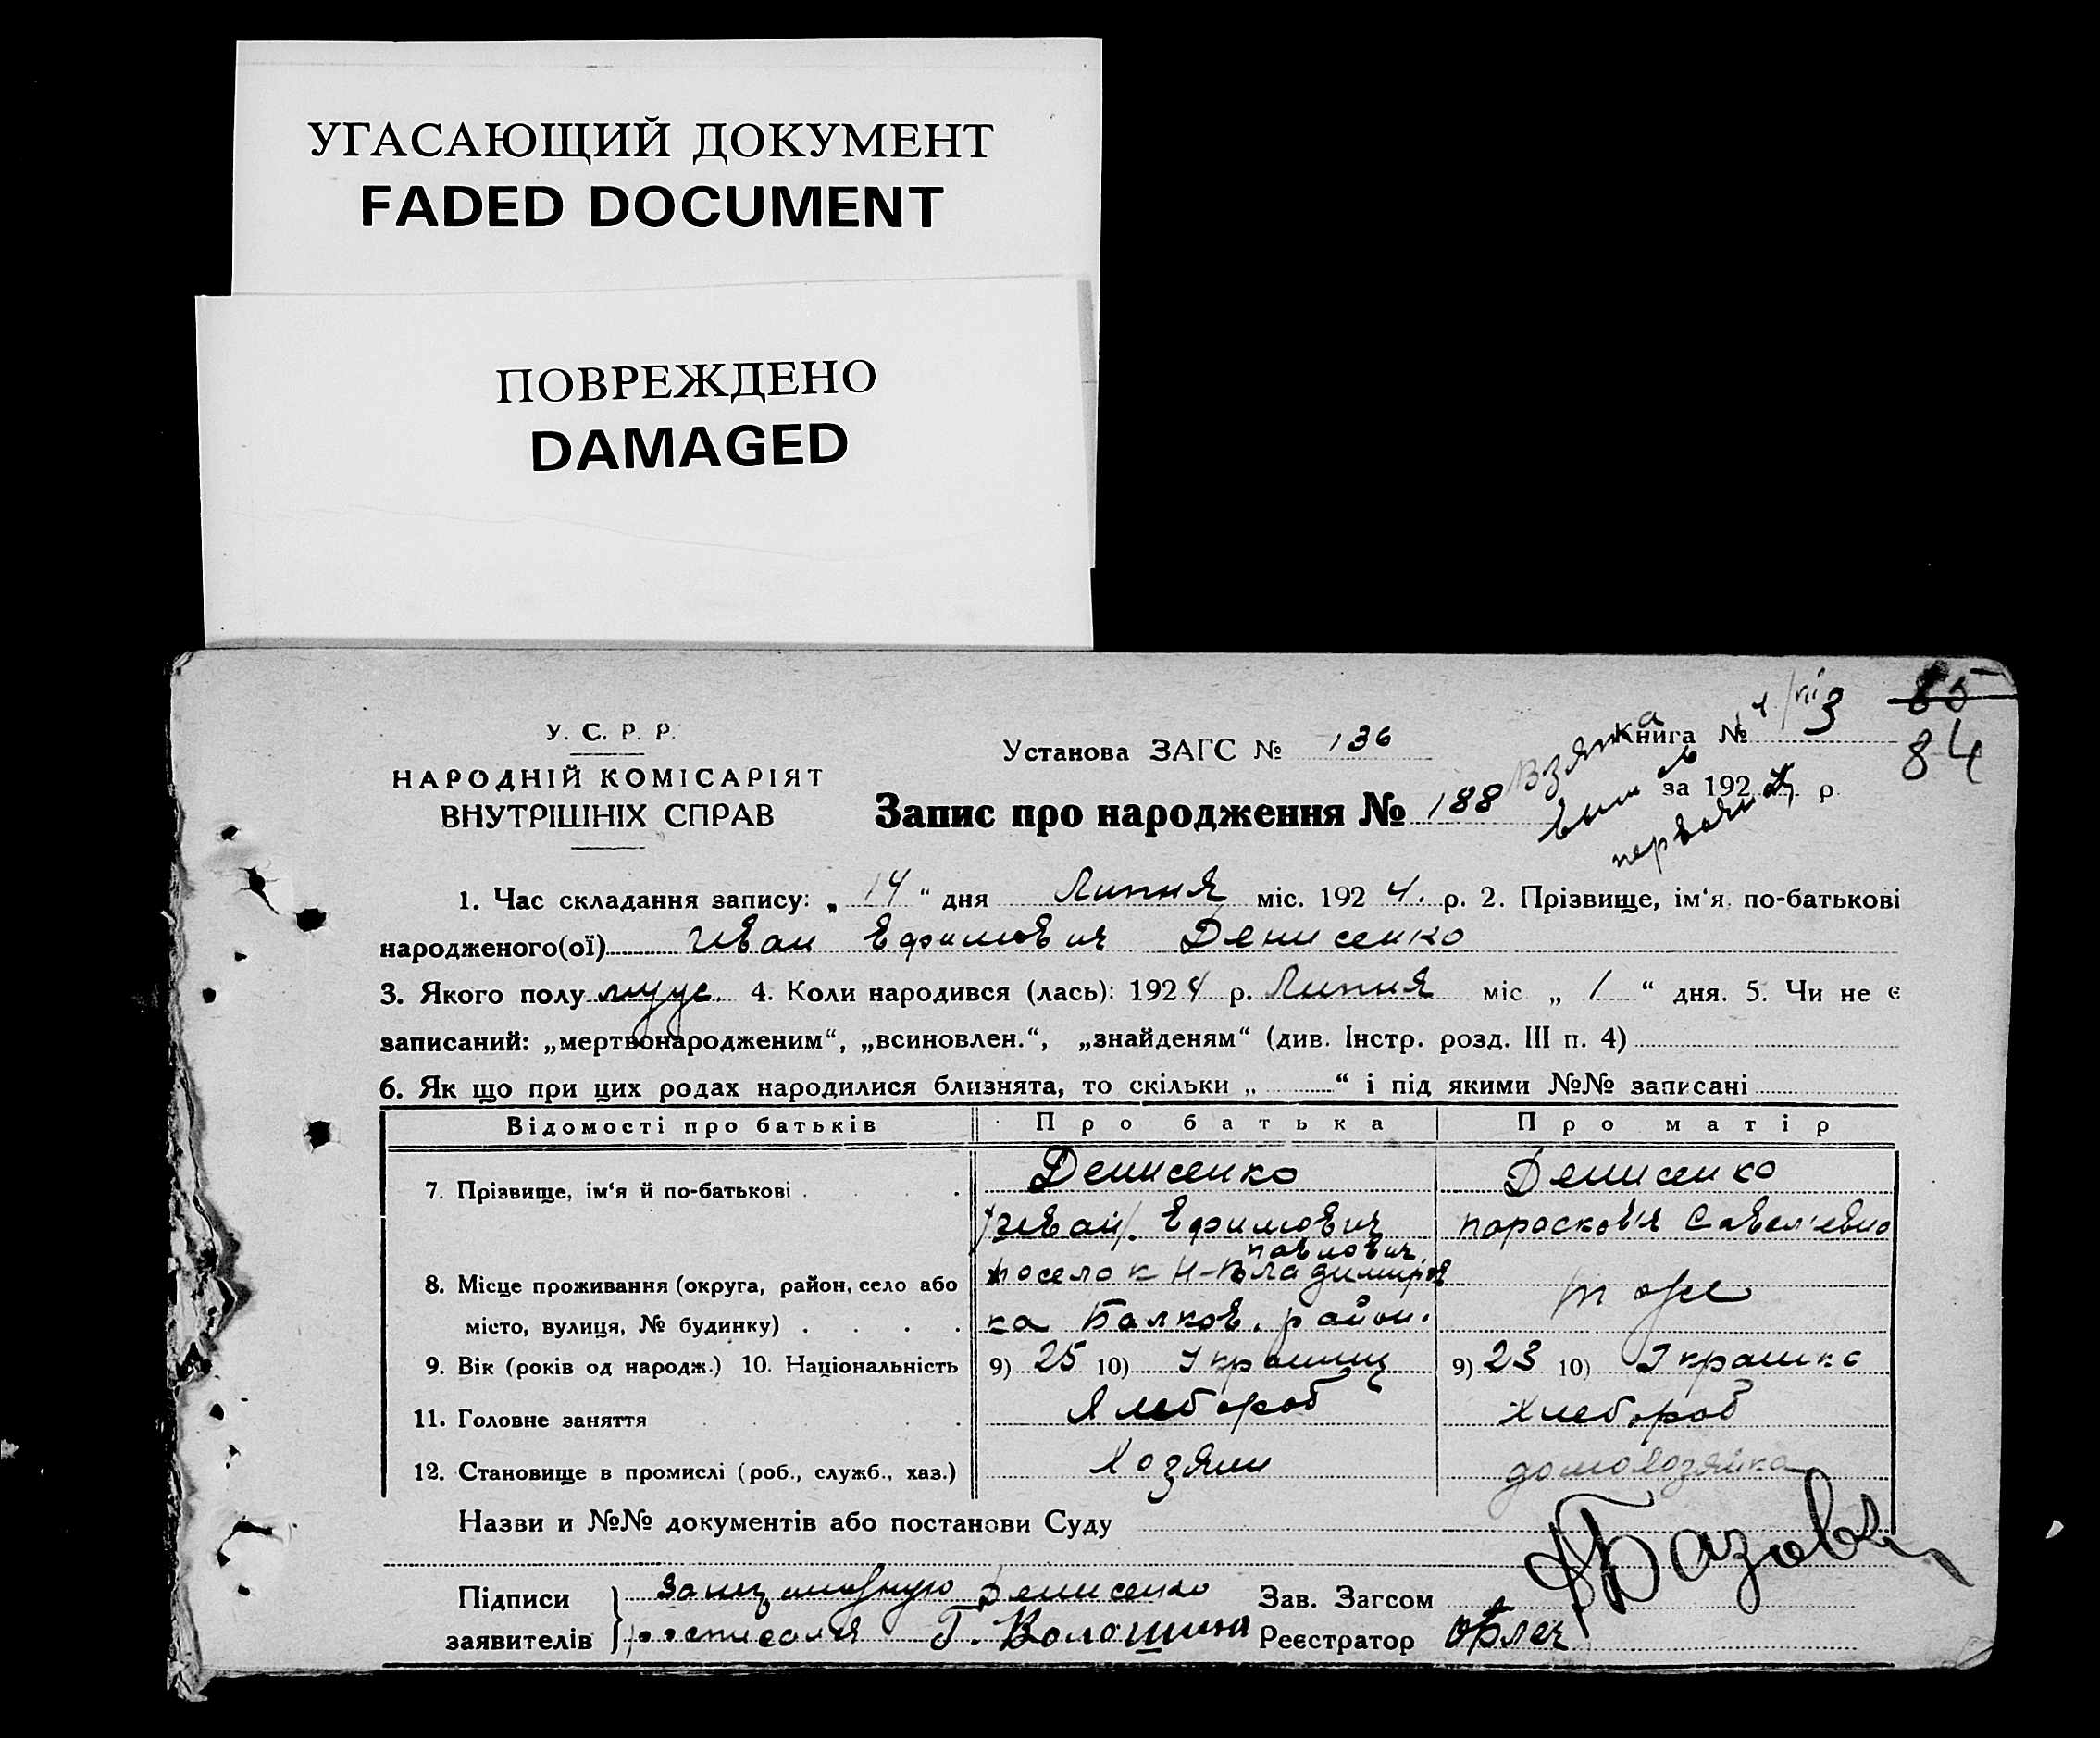 УГАСАЮЩИЙ ДОКУМЕНТ
FADED DOCUMENT
ПОВРЕЖДЕНО
DAMAGED
85
84
У. С. Р. Р.
НАРОДНІЙ КОМІСАРІЯТ
ВНУТРІШНІХ СПРАВ
Установа ЗАГС № 136
Книга № 3
за 192 4 р.
Запис про народження № 188
1. Час складання запису: „ 14 “ дня Липня міс. 192 4. р. 2. Прізвище, ім‘я по-батькові
народженого(ої) Иван Ефимович Денисенко
3. Якого полу муж. 4. Коли народився (лась): 192 4 р. Липня міс „ 1 “ дня. 5. Чи не є
записаний: „мертвонародженим“, „всиновлен.“, „знайденям“ (див. Інстр. розд. III п. 4)
6. Як що при цих родах народилися близнята, то скільки „ “ і під якими №№ записані
Відомості про батьків Про батька Про матір
7. Прізвище, ім‘я й по-батькові . Денисенко Денисенко
Иван Ефимович Парасков'я Савел'евна
Павлович
8. Місце проживання (округа, район, село або поселок Н-Владимиров тоже
місто, вулиця, № будинку) . ка Балков. район.
9. Вік (років од народж.) 10. Національність 9) 25 10) Украинц 9) 23 10) Украинка
11. Головне заняття Хлебороб Хлебороб
12. Становище в промислі (роб., служб., хаз.) Хозяин домохозяйка
Назви и №№ документів або постанови Суду
Підписи заявителів
За неграмотную Денисенко
росписался Г. Волошина
Зав. Загсом
Реєстратор